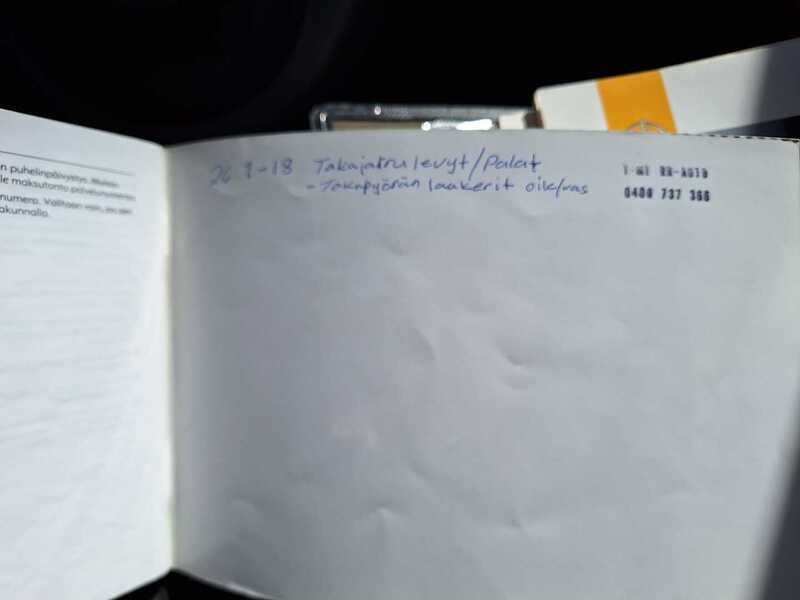 n puhelinpäivystys. Muista
le maksutonta palvelunumeroa
numero. Valitaan vain, jos olet
akunnalla.
26 9-18 Takajarrulevyt/Palat
- Takapyörän laakerit oik/vas
T-MI RR-AUTO
0400 737 366